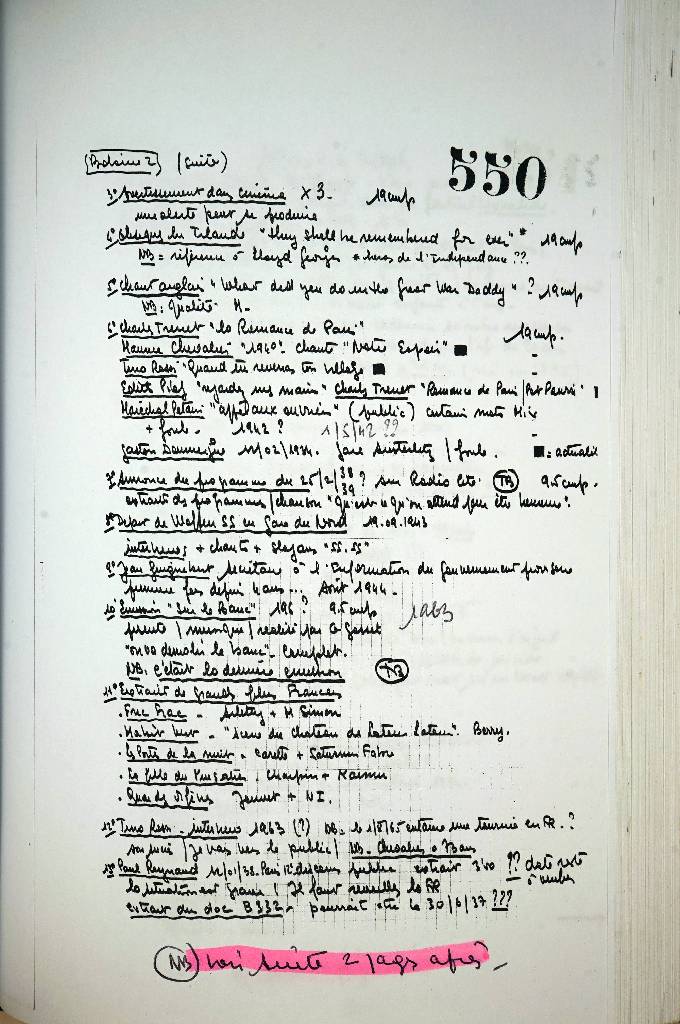 550
Bobine 2 (suite)
3° Avertissement dans cinéma X 3- 19cm/s
une alerte peut se produire
4° Irlande "they shall be remembered for ever" * 19cm/s
NB = référence à Lloyd George * héros de l'Indépendance ??
5° Chant anglais "What did you do in the Great War Daddy" ? 19cm/s
NB: Qualité M-
6° Charles Trenet "la Romance de Paris" 19cm/s.
Maurice Chevalier "1940" chante "Notre Espoir" ■ -
Tino Rossi "Quand tu reverras ton village ■ -
Edith Piaf "regardez mes mains" Charles Trenet "Romance de Paris
Maréchal Petain "appel aux ouvriers" (public) certains mots
+ foule - 1942 ? 1/5/42 ??
Gaston Doumergue 11/02/1934. Gare Austerlitz / foule. ■ = actualité
7° Annonce du programme du 25/2/38 ? sur Radio Cité. TB 9,5cm/s -
39
extraits des programmes / chanson "Qu'est ce qu'on attend pour être heureux".
8° Départ de Waffen SS en Gare du Nord 19.09.1943
interviews + chants + slogans "SS.SS"
9° Jean Guignebert secrétaire à l'Information du Gouvernement provisoire
première fois depuis 4 ans... Août 1944 -
10° Emission "Sur le Banc" 196 ? 9,5cm/s 1963
/ musique / réalité par
"on va démolir le banc" - Complet.
NB. C'était la dernière émission TB
11° Extraits de Grands films Français
. Fric Frac - Arletty + M Simon
. "Scène du chateau de Berry.
. Les Portes de la nuit - Carette + Saturnin Fabre
. La fille du Puisatier, Charpin + Raimu
. Quai des Orfèvres Jouvet + NI.
12° Tino Rossi - interview 1963 (?) NB: le 1/8/65 entame une tournée en FR. ?
/ Je vais vers le public / NB - Chevalier à
13° Paul Reynaud 12/01/38. Paris discours public extrait 3'40 ?? date reste
à vérifier
la situation est grave ! Il faut réveiller la FR
extrait du doc B332 - pourrait être le 30/6/37 ???
NB voir suite 2 pages après -